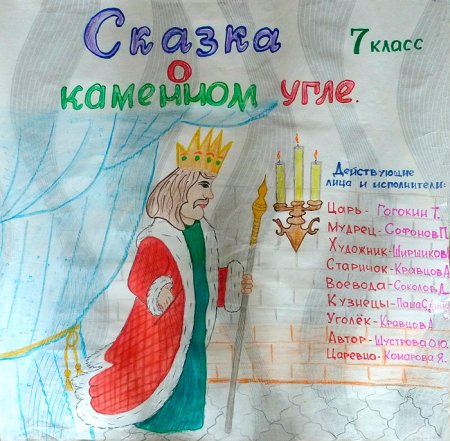 Сказка
7 класс
о
каменном угле.
Действующие
лица и исполнители:
Царь - Гогокин Т.
Мудрец - Софонов П.
Художник - Ширшиков
Старичок - Кравцов А
Воевода - Соколов Д.
Кузнецы -
Уголёк - Кравцов А
Автор - Шустрова О.Ю.
Царевна - Комарова Я.